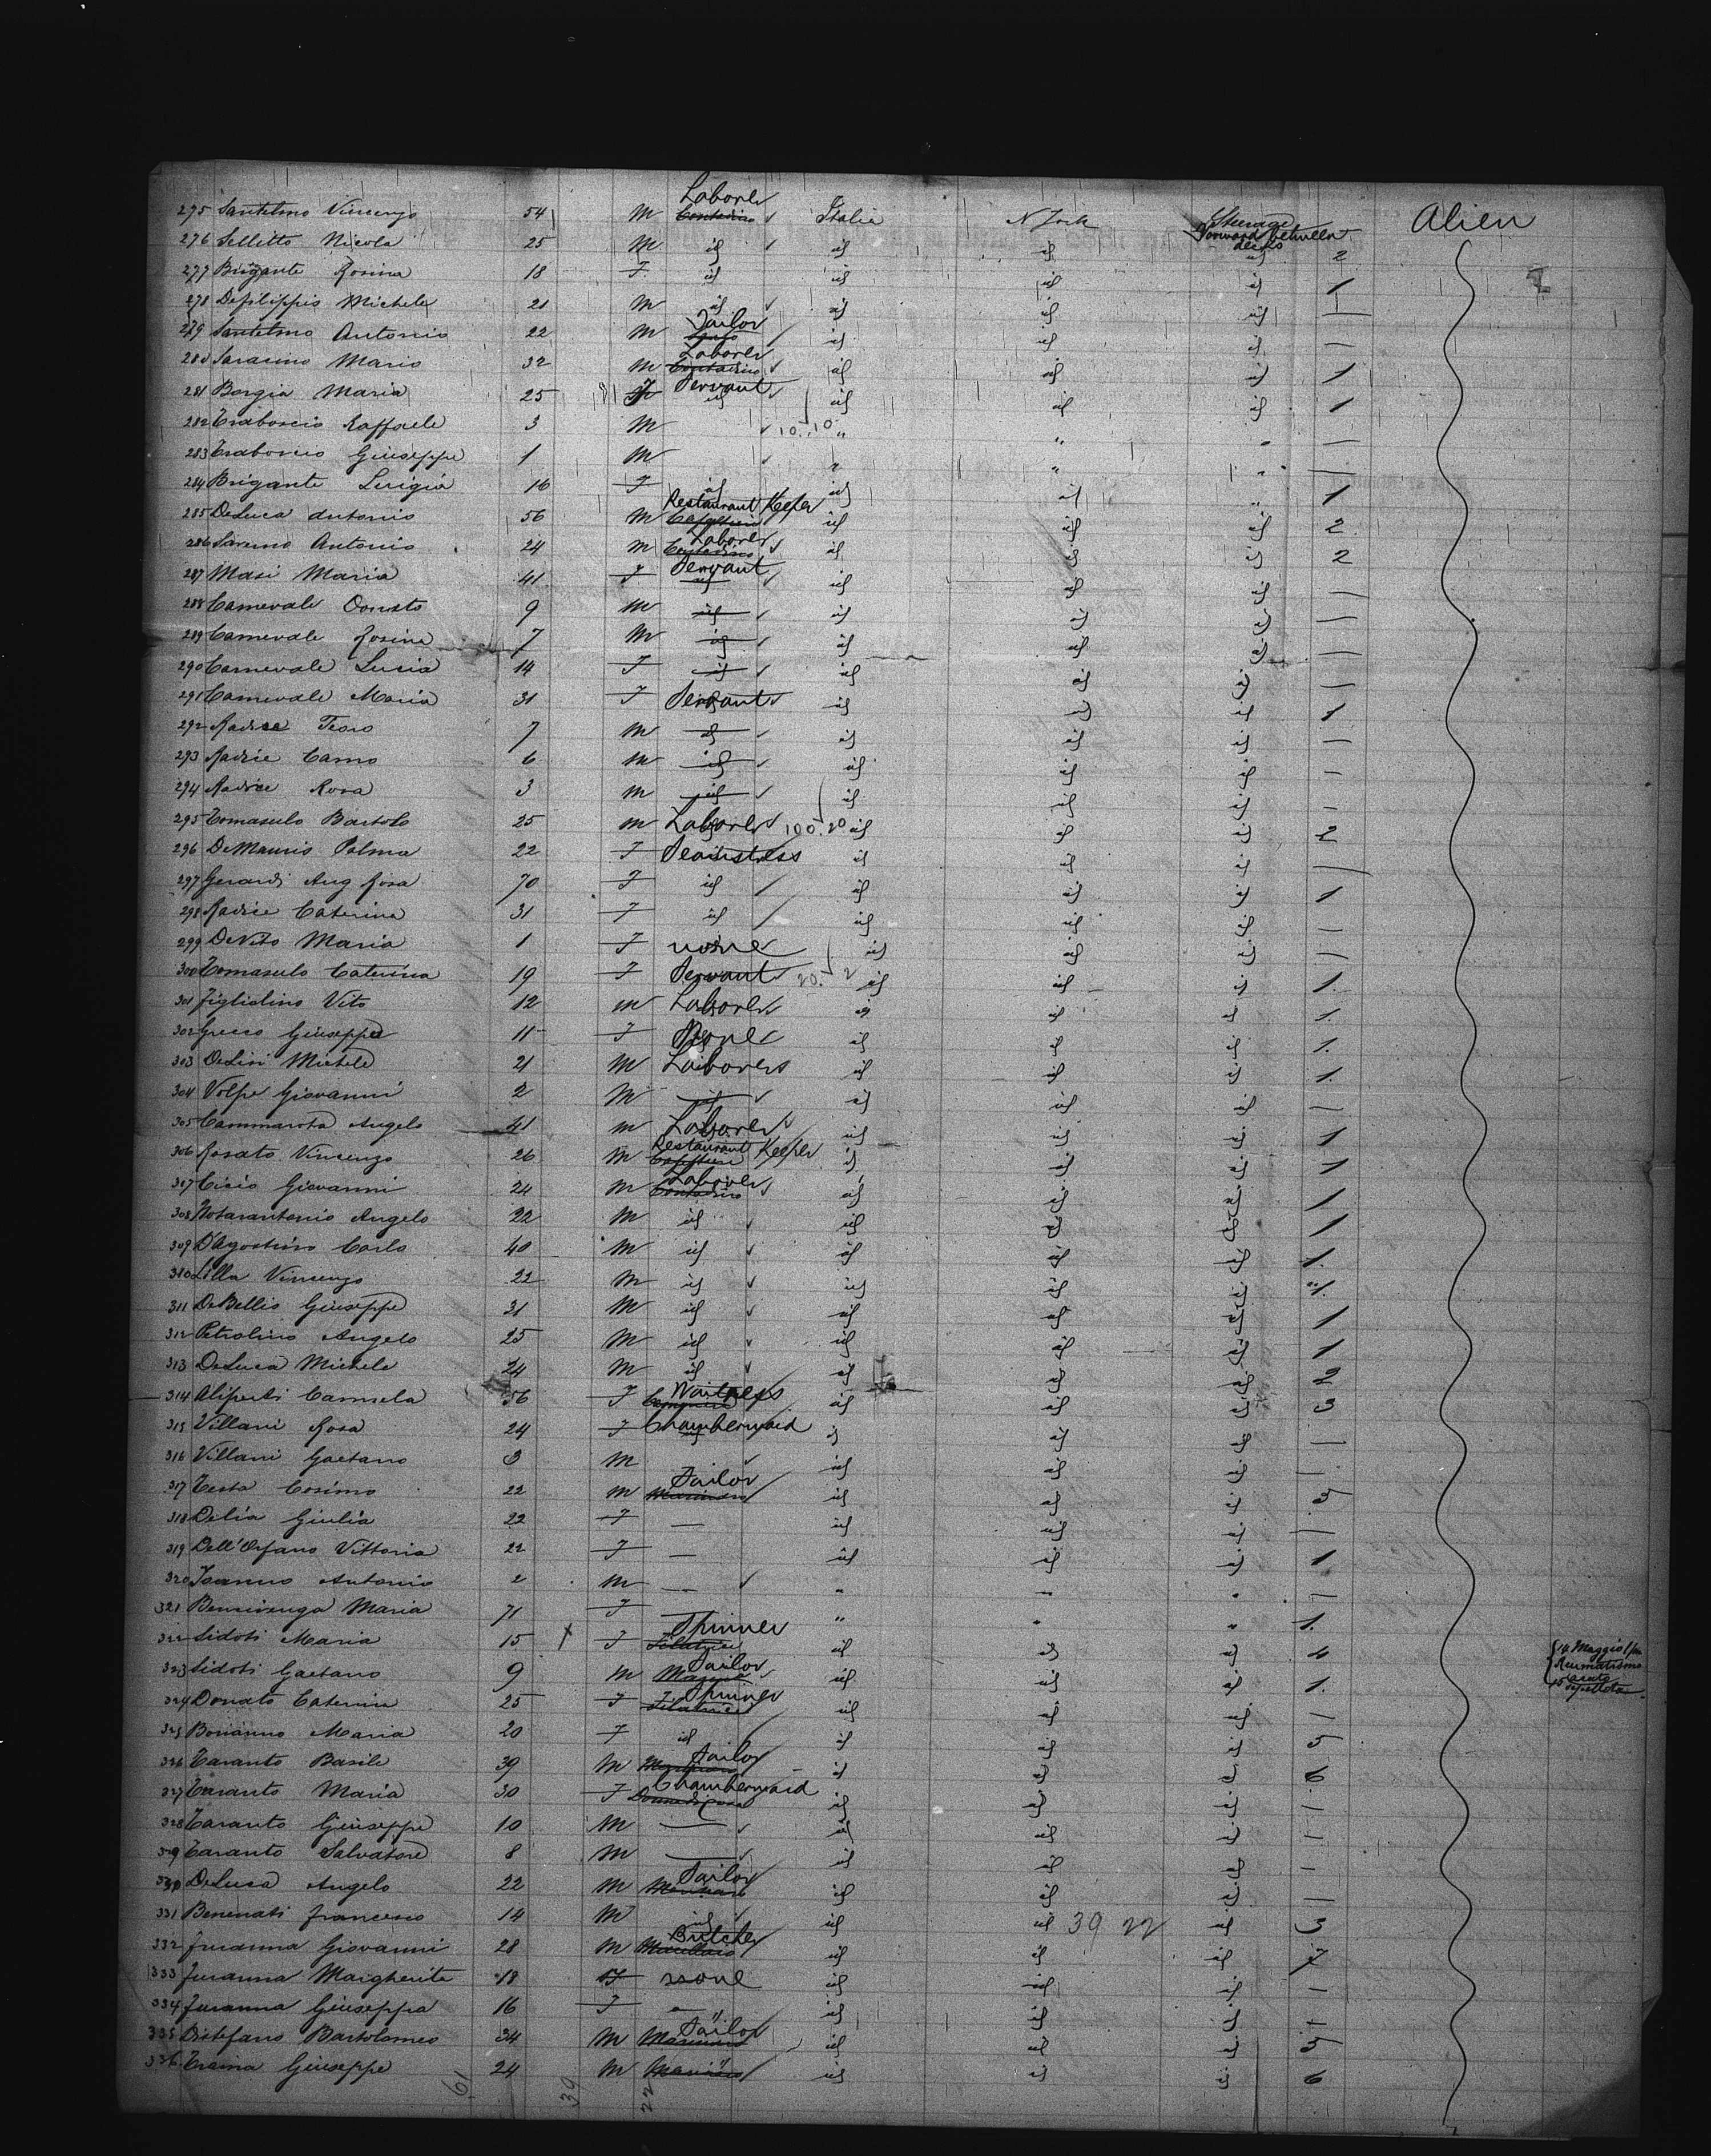 275 Santelmo Vincenzo 54 M Laborer Contadino Italia N York Steerage Forward between decks Alien
276 Sellitto Nicola 25 M id id id id 2
277 Brigante Rosina 18 F id id id id 1
278 Defilippis Michele 21 M id id id id —
279 Santelmo Antonio 22 M Tailor id id id —
280 Saracino Mario 32 M Laborer Contadino id id id 1
281 Borgia Maria 25 F Servant id id id id 1
282 Traboscio Raffaele 3 M 10. 10 " " " —
283 Traboscio Giuseppe 1 M " " " —
284 Brigante Luigia 16 F id id id " 1
285 DeLuca Antonio 56 M Restaurant Keeper id id id 2
286 Saverno Antonio 24 M Laborer Contadino id id id 2
287 Masi Maria 41 F Servant id id id id —
288 Carnevale Donato 9 M id id id id —
289 Carnevale Rosina 7 M id id id id —
290 Carnevale Lucia 14 F id id id id —
291 Carnevale Maria 31 F Servant id id id 1
292 Radice Teoro 7 M id id id id —
293 Radice Carno 6 M id id id id —
294 Radice Rosa 3 M id id id id —
295 Tomasulo Bartolo 25 M Laborer 100. 20 id id id 2
296 DeMauris Palma 22 F Seamstress id id id —
297 Gerardi Ang Rosa 70 F id id id id 1
298 Radice Caterina 31 F id id id id —
299 DeVito Maria 1 F none id id id —
300 Tomasulo Caterina 19 F Servant 20. 2 id id id 1.
301 Figliolino Vito 12 M Laborer id id id 1.
302 Greco Giuseppa 11 F None id id id 1.
303 DeLisi Michele 21 M Laborer id id id 1.
304 Volpe Giovanni 2 M id id id id —
305 Cammarota Angelo 41 M Laborer id id id 1
306 Rosato Vincenzo 26 M Restaurant Keeper id id id 1
307 Cicio Giovanni 24 M Laborer Contadino id id id 1
308 Notarantonio Angelo 22 M id id id id 1
309 D'Agostino Carlo 40 M id id id id 1.
310 Lilla Vincenzo 22 M id id id id 1.
311 DeBellis Giuseppe 31 M id id id id 1
312 Petrolino Angelo 25 M id id id id 1
313 DeLuca Michele 24 M id id id id 2
314 Aliperti Carmela 56 F Waitress id id id 3
315 Villani Rosa 24 F Chambermaid id id id —
316 Villani Gaetano 3 M id id id —
317 Testa Cosimo 22 M Tailor Marinaro id id id 3
318 Delia Giulia 22 F — id id id —
319 Dell'Orfano Vittoria 22 F — id id id 1
320 Joanno Antonio 2 M — " " " —
321 Bencivenga Maria 71 F — " " " 1.
322 Sidoti Maria 15 X F Spinner Filatrice id id id 4 14 Maggio Reumatismo
323 Sidoti Gaetano 9 M Tailor id id id 1.
324 Donato Caterina 25 F Spinner Filatrice id id id —
325 Bonanno Maria 20 F id id id id 5
326 Taranto Basile 39 M Tailor id id id 6
327 Taranto Maria 30 F Chambermaid Donna di casa id id id —
328 Taranto Giuseppe 10 M — id id id —
329 Taranto Salvatore 8 M — id id id —
330 DeLuca Angelo 22 M Tailor Marinaro id id id —
331 Benenati Francesco 14 M id id id 39 22 id 3
332 Furanna Giovanni 28 M Butcher Macellaio id id id 7
333 Furanna Margherita 18 F none id id id —
334 Furanna Giuseppa 16 F — id id id —
335 Distefano Bartolomeo 34 M Tailor Marinaro id id id 3
336 Traina Giuseppe 24 M " Marinaro id id id 6
61 39 22